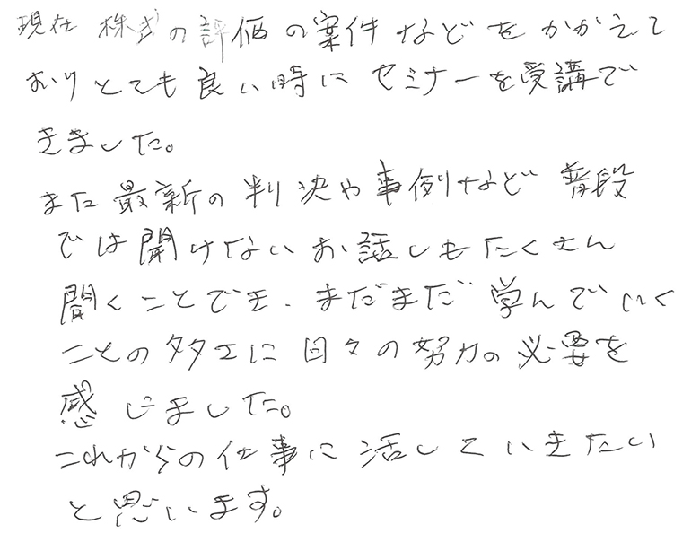 現在 株式の評価の案件などをかかえて
おりとても良い時にセミナーを受講で
きました。
また最新の判決や事例など 普段
では聞けないお話しもたくさん
聞くことでき、まだまだ学んでいく
ことの多さに日々の努力の必要を
感じました。
これからの仕事に活していきたい
と思います。